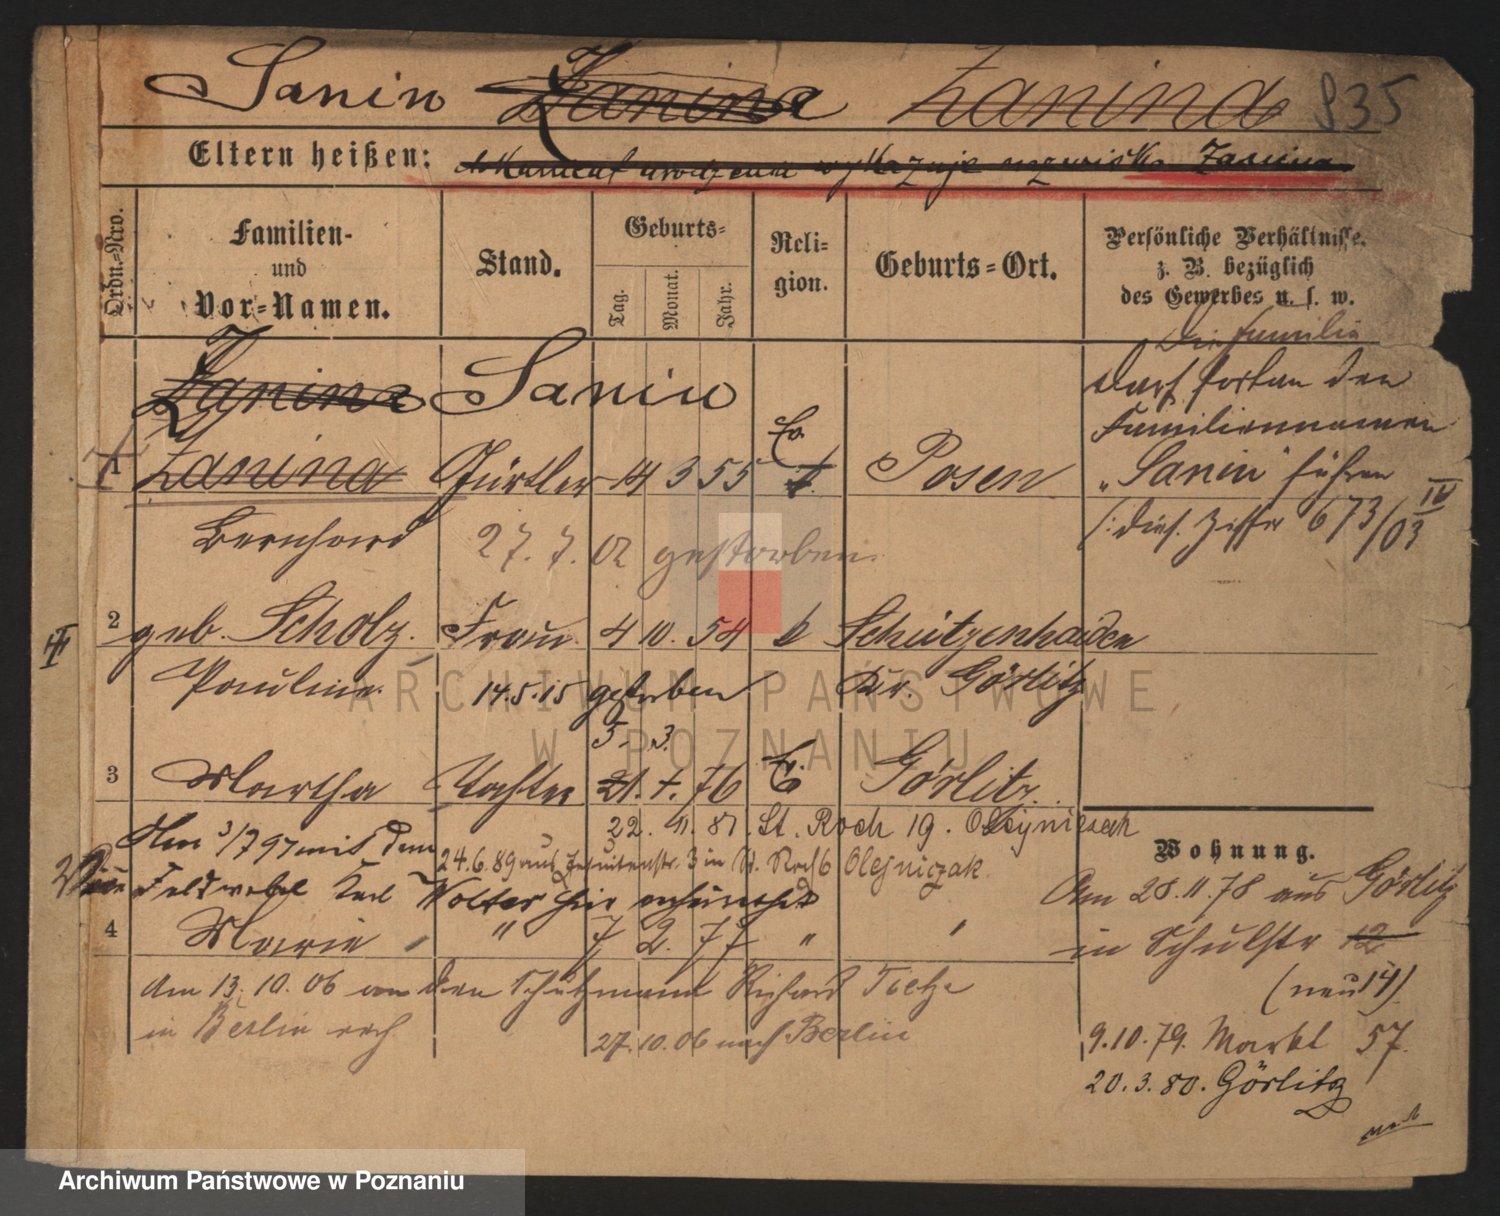 Sanin Zanina Zanina 835
Eltern heißen: wykazuje nazwisko Zanina
Ordn.-Nro.
Familien- und Vor-Namen.
Stand.
Geburts-
Tag. Monat. Jahr.
Religion.
Geburts-Ort.
Persönliche Verhältnisse, z. B. bezüglich des Gewerbes u. s. w.
Die Familie
darf fortan den
Familiennamen
„Sanin" führen
(: dies. Ziffer 673/03 IV
Zanina Sanin
Ev.
1 Zanina Gürtler 14 3 55 Posen
Bernhard 27.7.02 gestorben.
2 geb. Scholz. Frau 4 10. 54 Schützenhaiden
Pauline 14.5.15 gestorben Kr. Görlitz
5. 3.
3 Martha Tochter 21. 4. 76 E. Görlitz
22. 11. 81. St. Roch 19.
Am 3/7 97 mit dem
24.6.89 aus Jesuitenstr. 3 in St. Roch 6 Olejniczak.
Feldwebel Karl Wolter hier
4 Marie " 7. 2. 77 " "
am 13. 10. 06 an den Schutzmann Richard Tietze
in Berlin verh
27. 10. 06 nach Berlin
Wohnung.
Am 28.11.78 aus Görlitz
in Schulstr 12
(neu 14)
9.10.79. Markt 57.
20.3.80. Görlitz
ARCHIWUM PAŃSTWOWE
W POZNANIU
Archiwum Państwowe w Poznaniu